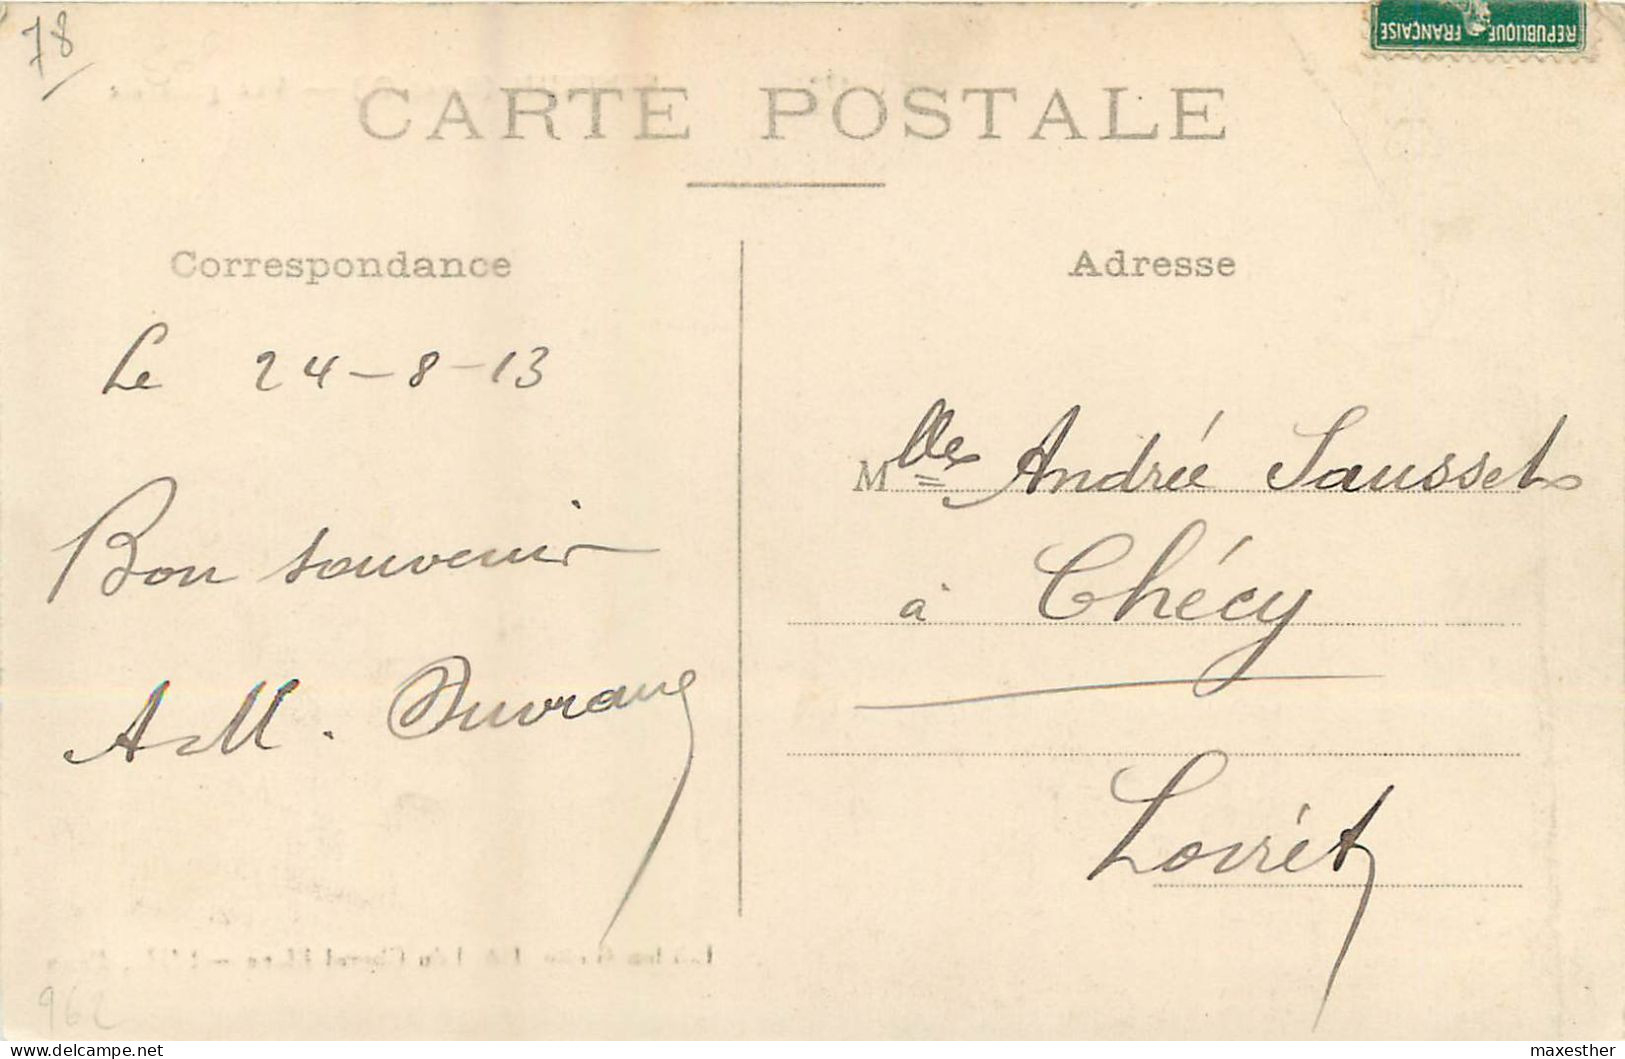 78
REPUBLIQUE FRANÇAISE
CARTE POSTALE
Correspondance
Le 24-8-13
Bon souvenir
A M.
Adresse
Mlle Andrée Sausset
à Chécy
Loirét
962
delcampe.net
maxesther